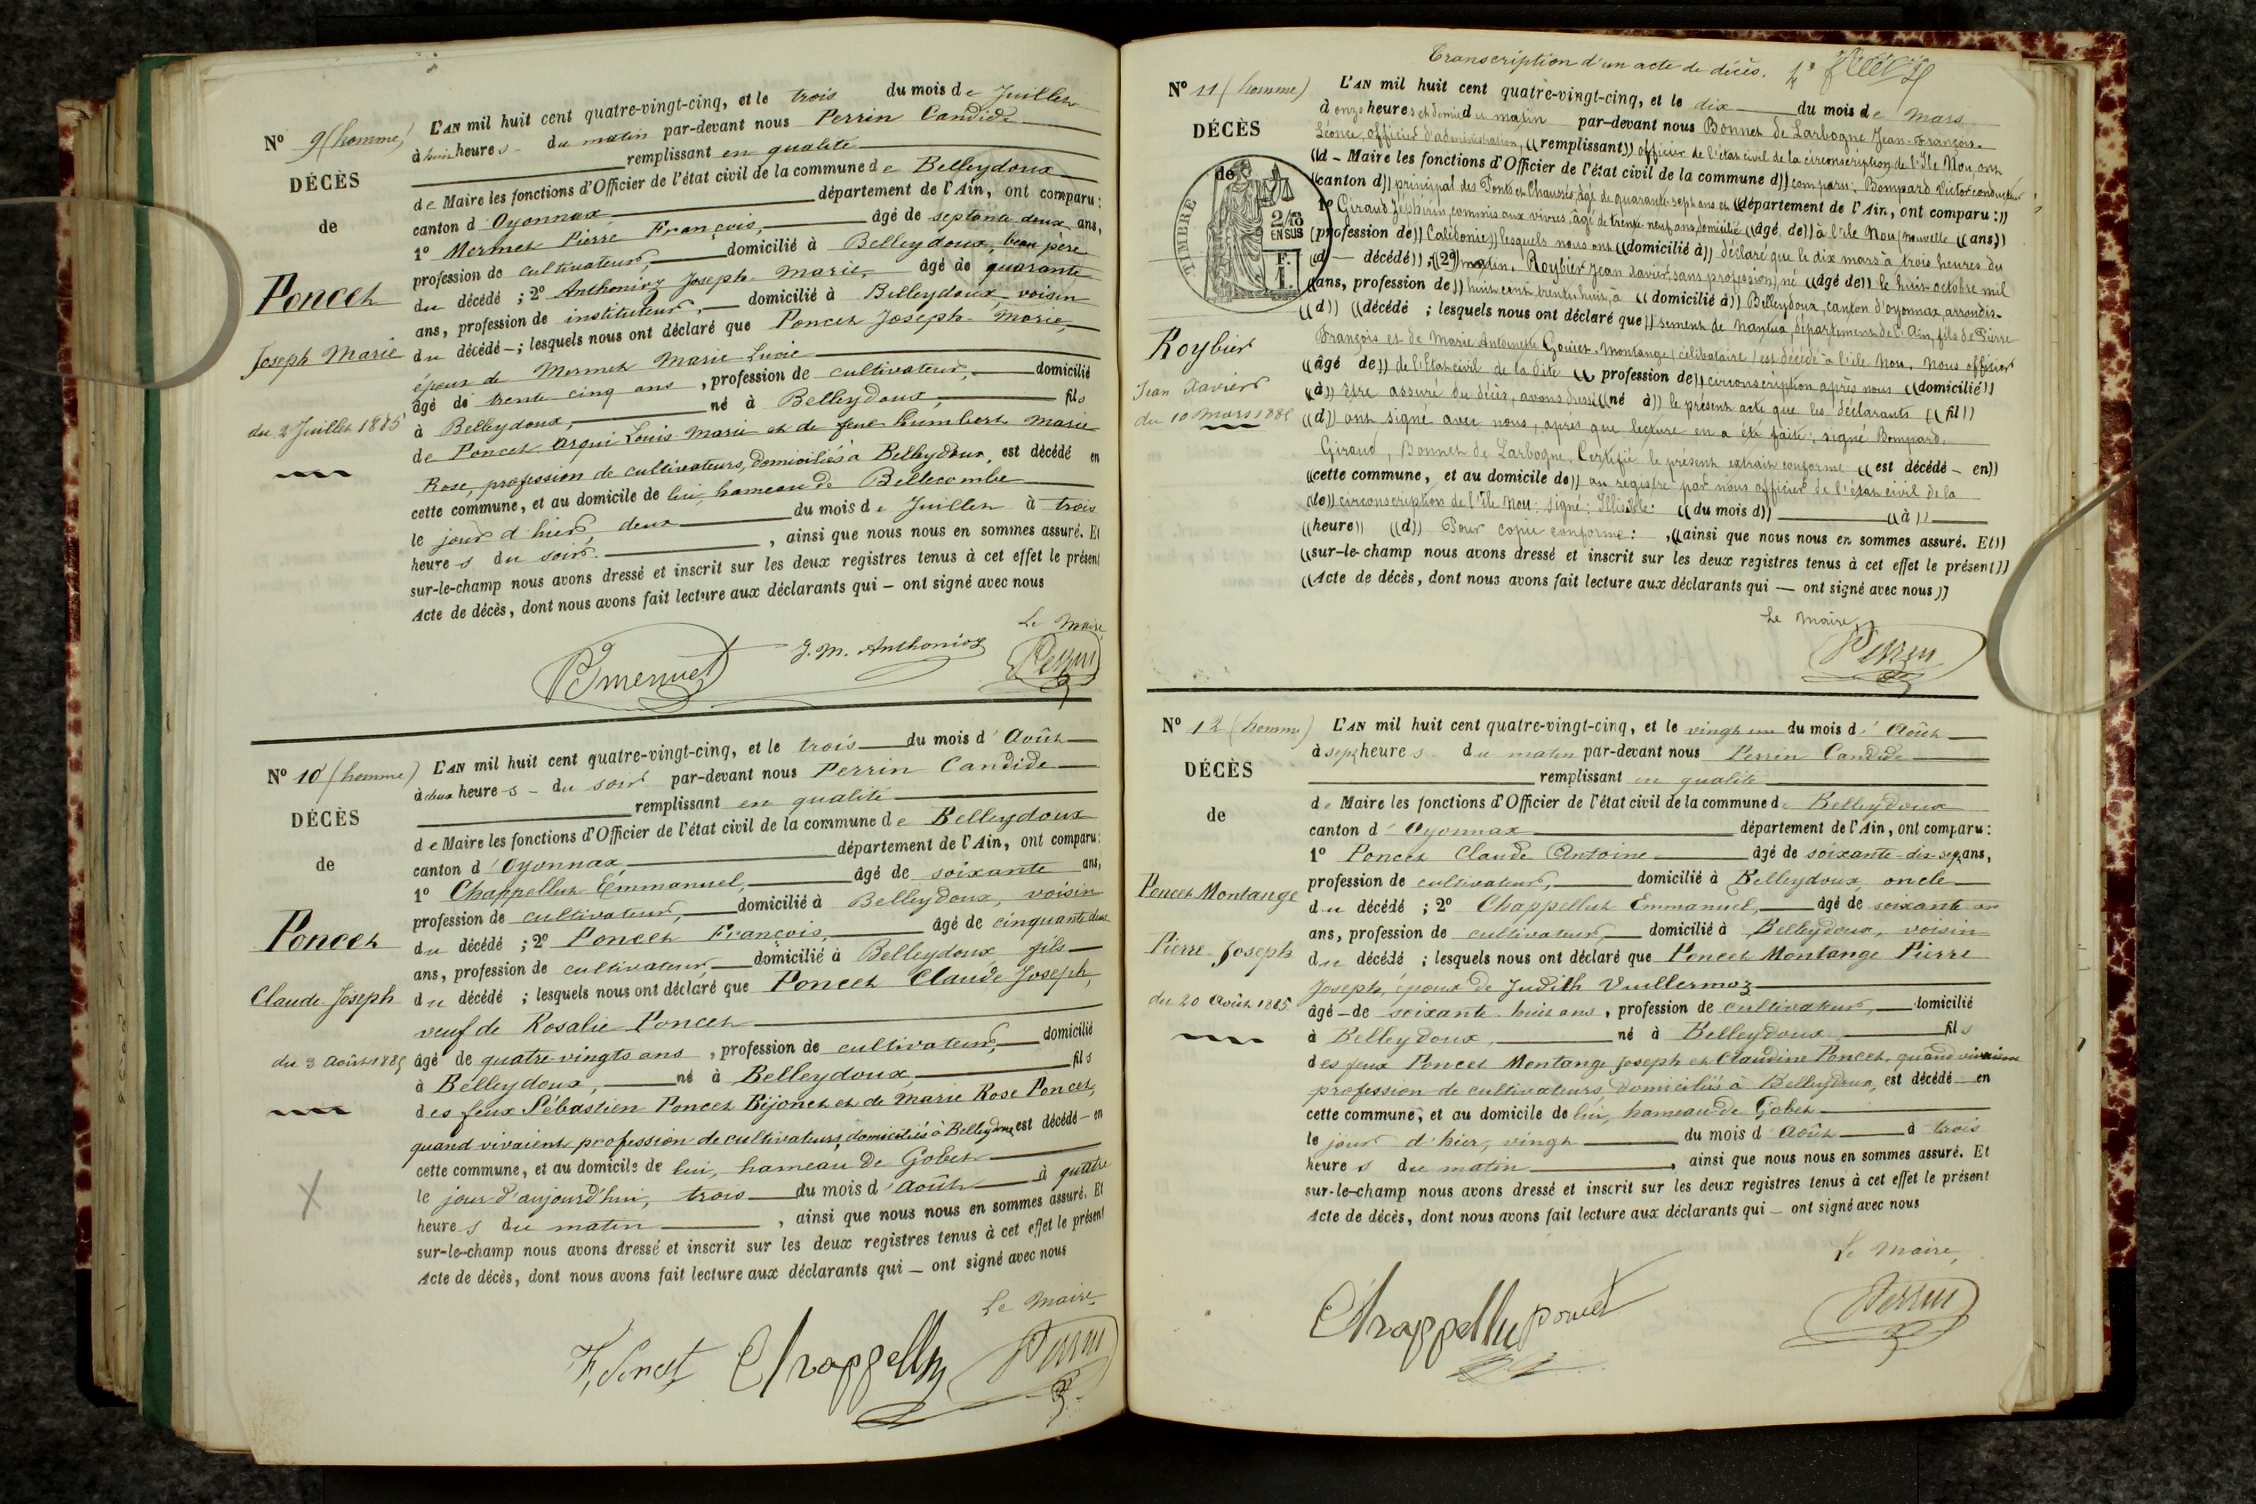 Nº 9 (homme)
DÉCÈS
de
Poncet
Joseph Marie
du 2 Juillet 1885
L'AN mil huit cent quatre-vingt-cinq, et le trois du mois de Juillet
à huit heures du matin par-devant nous Perrin Candide
remplissant en qualité
de Maire les fonctions d'Officier de l'état civil de la commune de Belleydoux
canton d'Oyonnax département de l'Ain, ont comparu:
1º Mermet Pierre François, âgé de septante deux ans,
profession de cultivateur, domicilié à Belleydoux, beau père
du décédé ; 2º Anthonioz Joseph Marie, âgé de quarante
ans, profession de instituteur, domicilié à Belleydoux voisin
du décédé ; lesquels nous ont déclaré que Poncet Joseph Marie,
époux de Mermet Marie Lucie
âgé de trente cinq ans, profession de cultivateur, domicilié
à Belleydoux, né à Belleydoux, fils
de Poncet Arqui Louis Marie et de feue Humbert Marie
Rose, profession de cultivateurs, domiciliés à Belleydoux, est décédé en
cette commune, et au domicile de lui, hameau de Bellecombe
le jour d'hier, deux du mois de Juillet à trois
heures du soir. , ainsi que nous nous en sommes assuré. Et
sur-le-champ nous avons dressé et inscrit sur les deux registres tenus à cet effet le présent
Acte de décès, dont nous avons fait lecture aux déclarants qui – ont signé avec nous
Le Maire
J. M. Anthonioz
Perrin
Nº 10 (homme)
DÉCÈS
de
Poncet
Claude Joseph
du 3 Août 1885
X
L'AN mil huit cent quatre-vingt-cinq, et le trois du mois d'Août
à deux heures du soir par-devant nous Perrin Candide
remplissant en qualité
de Maire les fonctions d'Officier de l'état civil de la commune de Belleydoux
canton d'Oyonnax, département de l'Ain, ont comparu:
1º Chappelluz Emmanuel, âgé de soixante ans,
profession de cultivateur, domicilié à Belleydoux, voisin
du décédé ; 2º Poncet François, âgé de cinquante deux
ans, profession de cultivateur domicilié à Belleydoux, fils
du décédé ; lesquels nous ont déclaré que Poncet Claude Joseph,
veuf de Rosalie Poncet
âgé de quatre-vingts ans, profession de cultivateur, domicilié
à Belleydoux, né à Belleydoux, fils
des feux Sébastien Poncet Bijonet et de Marie Rose Poncet,
quand vivaient profession de cultivateurs domiciliés à Belleydoux est décédé en
cette commune, et au domicile de lui, hameau de Gobet
le jour d'aujourd'hui, trois du mois d'Août à quatre
heures du matin , ainsi que nous nous en sommes assuré. Et
sur-le-champ nous avons dressé et inscrit sur les deux registres tenus à cet effet le présent
Acte de décès, dont nous avons fait lecture aux déclarants qui – ont signé avec nous
Le Maire,
F. Poncet Chappelluz Perrin
Transcription d'un acte de décès.
Nº 11 (homme)
DÉCÈS
de
TIMBRE
2/10
EN SUS
Roybier
Jean Xavier
du 10 Mars 1885
L'AN mil huit cent quatre-vingt-cinq, et le dix du mois de Mars
à onze heures et demie du matin par-devant nous Bonnet de Larbogne Jean-François-
Léonce, officier d'administration, ((remplissant)) officier de l'état civil de la circonscription de l'Ile Nou, ont
((d – Maire les fonctions d'Officier de l'état civil de la commune d)) comparu: Bompard Victor conducteur
((canton d)) principal des Ponts et Chaussés, âgé de quarante-sept ans et ((département de l'Ain, ont comparu:))
1º Giraud Zéphirin, commis aux vivres, âgé de trente neuf ans, domiciliés ((âgé de)) à l'île Nou (Nouvelle ((ans))
(profession de)) Calédonie)) lesquels nous ont ((domicilié à)) déclaré que le dix mars à trois heures du
((d — décédé)) ; ((2º)) matin. Roybier Jean Xavier (sans profession) né ((âgé de)) le huit octobre mil
((ans, profession de)) huit cent trente-huit, à ((domicilié à)) Belleydoux, canton d'Oyonnax, arrondis-
((d)) ((décédé ; lesquels nous ont déclaré que)) sement de Nantua, département de l'Ain, fils de Pierre
François et de Marie Antoinette Goujet-Montange (célibataire) est décédé à l'île Nou. Nous officier
((âgé de)) de l'état civil de la dite ((profession de)) circonscription après nous ((domicilié))
((à)) être assuré du décès, avons dressé ((né à)) le présent acte que les déclarants ((fil))
((d)) ont signé avec nous, après que lecture en a été faite: signé Bompard,
Giraud, Bonnet de Larbogne. Certifié le présent extrait conforme ((est décédé – en))
((cette commune, et au domicile de)) au registre par nous officier de l'état civil de la
((le)) circonscription de l'Ile Nou: signé: Illisible: ((du mois d)) ((à))
((heure)) ((d)) Pour copie conforme: ,((ainsi que nous nous en sommes assuré. Et))
((sur-le-champ nous avons dressé et inscrit sur les deux registres tenus à cet effet le présent))
((Acte de décès, dont nous avons fait lecture aux déclarants qui — ont signé avec nous))
Le Maire,
Perrin
Nº 12 (homme)
DÉCÈS
de
Poncet Montange
Pierre Joseph
du 20 Août 1885
L'AN mil huit cent quatre-vingt-cinq, et le vingt un du mois d'Août
à sept heures du matin par-devant nous Perrin Candide
remplissant en qualité
de Maire les fonctions d'Officier de l'état civil de la commune de Belleydoux
canton d'Oyonnax département de l'Ain, ont comparu:
1º Poncet Claude Antoine âgé de soixante-dix-sept ans,
profession de cultivateur, domicilié à Belleydoux oncle
du décédé ; 2º Chappelluz Emmanuel, âgé de soixante
ans, profession de cultivateur, domicilié à Belleydoux, voisin
du décédé ; lesquels nous ont déclaré que Poncet Montange Pierre
Joseph, époux de Judith Vuillermoz
âgé de soixante-huit ans, profession de cultivateur, domicilié
à Belleydoux, né à Belleydoux fils
des feux Poncet Montange Joseph et Claudine Poncet, quand vivaient
profession de cultivateurs domiciliés à Belleydoux, est décédé en
cette commune, et au domicile de lui, hameau de Gobet
le jour d'hier, vingt du mois d'Août à trois
heures du matin , ainsi que nous nous en sommes assuré. Et
sur-le-champ nous avons dressé et inscrit sur les deux registres tenus à cet effet le présent
Acte de décès, dont nous avons fait lecture aux déclarants qui – ont signé avec nous
Le Maire,
Chappelluz Poncet
Perrin